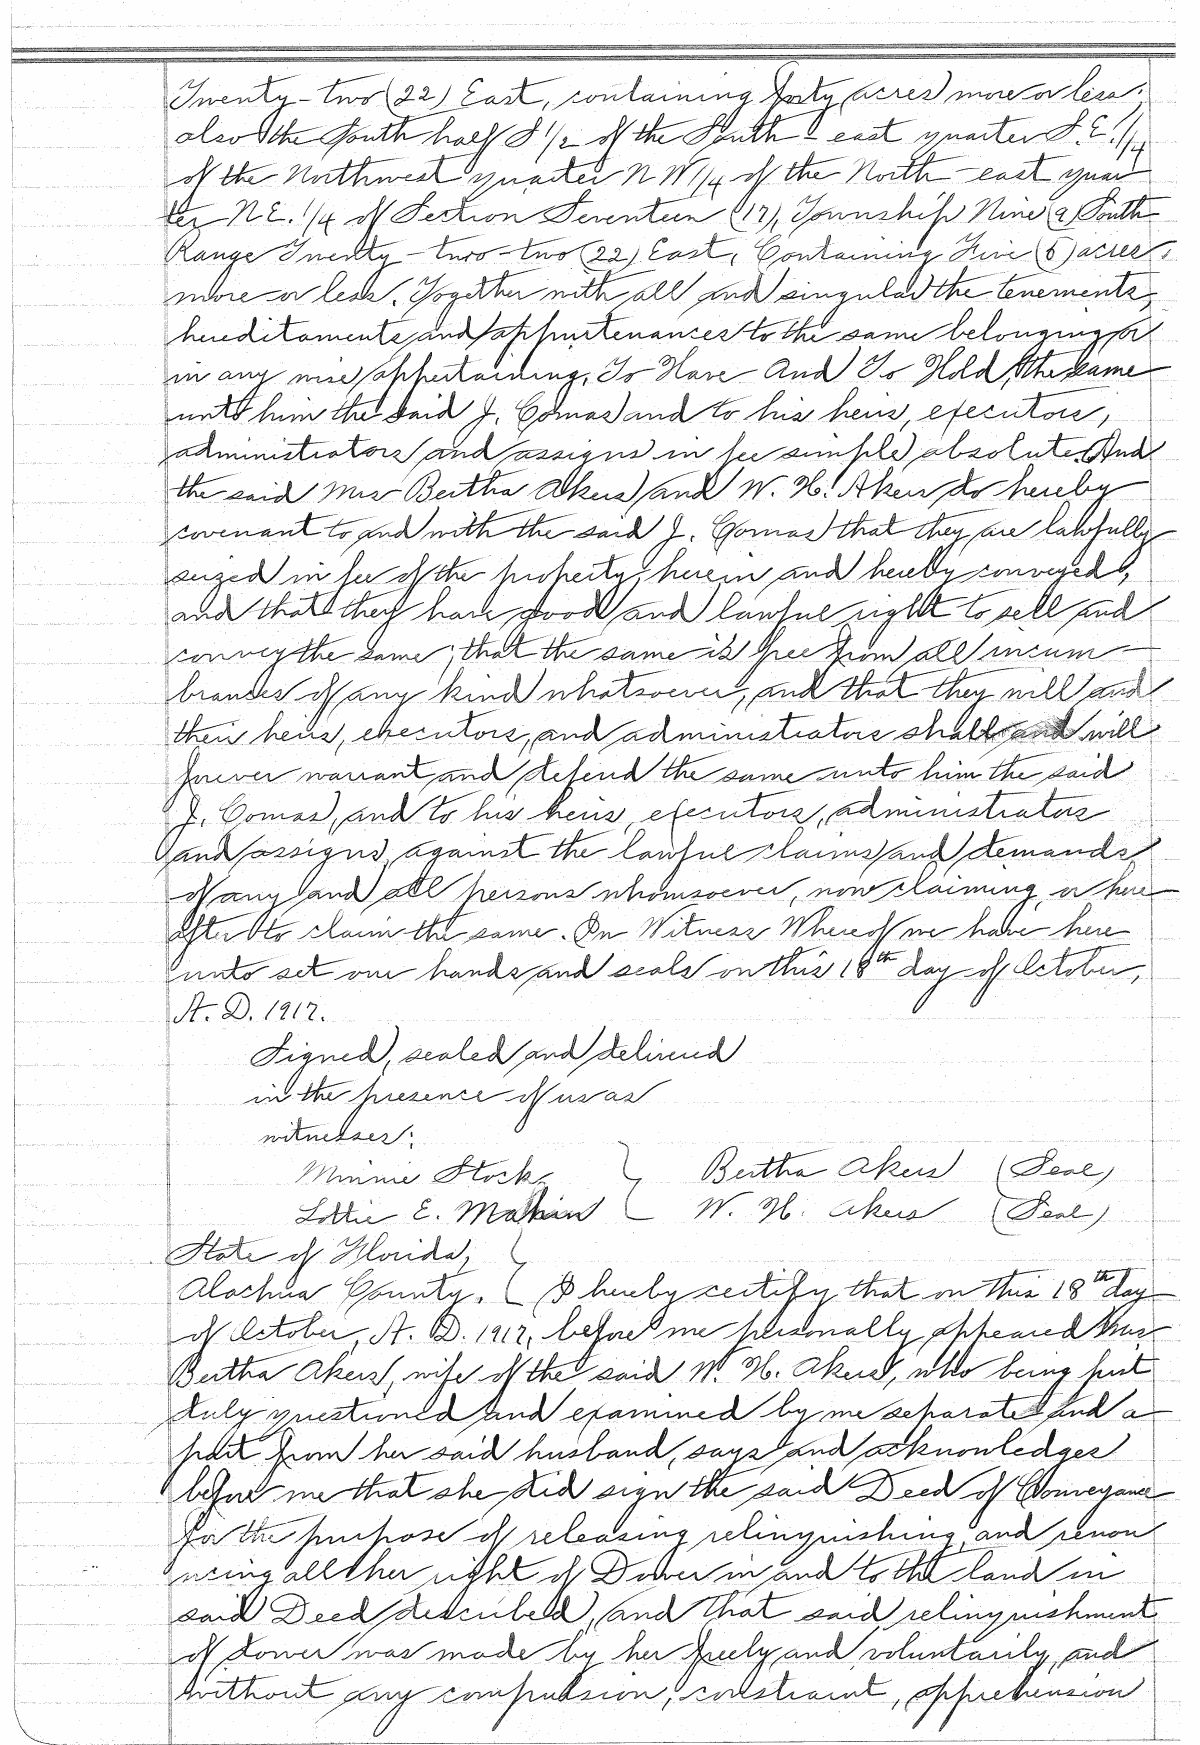 Twenty-two (22) East, containing forty acres more or less;
also the South half S 1/2 of the South-east quarter S.E. 1/4
of the Northwest quarter N W 1/4 of the North-east quar
ter N E. 1/4 of Section Seventeen (17), Township Nine (9) South
Range Twenty-two-two (22) East, Containing Five (5) acres,
more or less. Together with all and singular the tenements,
hereditaments and appurtenances to the same belonging or
in any wise appertaining. To Have And To Hold, the same
unto him the said J. Comas and to his heirs, executors,
administrators and assigns in fee simple absolute. And
the said Mrs Bertha Akers and W. H. Akers do hereby
covenant to and with the said J. Comas that they are lawfully
seized in fee of the property, herein and hereby conveyed,
and that they have good and lawful right to sell and
convey the same; that the same is free from all incum
brances of any kind whatsoever, and that they will and
their heirs, executors, and administrators shall and will
forever warrant and defend the same unto him the said
J. Comas, and to his heirs, executors, administrators
and assigns, against the lawful claims and demands
of any and all persons whomsoever, now claiming or here
after to claim the same. In Witness Whereof we have here
unto set our hands and seals on this 18th day of October,
A. D. 1917.
Signed, sealed and delivered
in the presence of us as
witnesses:
Minnie Stock Bertha Akers (Seal)
Lottie E. Mahin W. H. Akers (Seal)
State of Florida,
Alachua County. I hereby certify that on this 18th day
of October, A. D. 1917, before me personally appeared Mrs
Bertha Akers, wife of the said W. H. Akers, who being first
duly questioned and examined by me separate and a
part from her said husband, says and acknowledges
before me that she did sign the said Deed of Conveyance
for the purpose of releasing relinquishing, and renou
ncing all her right of Dower in and to the land in
said Deed described, and that said relinquishment
of dower was made by her freely and voluntarily, and
without any compulsion, constraint, apprehension